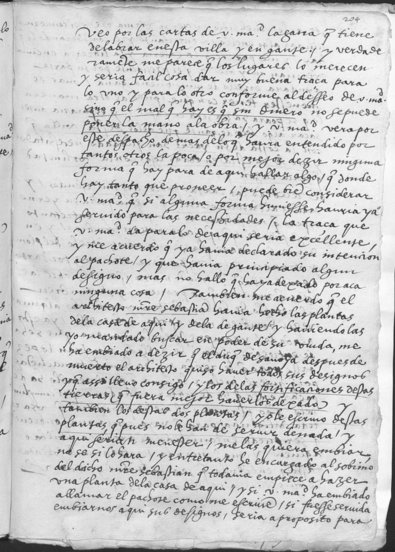 204
Veo por las cartas de v. mag. la gana q̃ tiene
de labrar en esta villa y en ganse / y verdade
ramẽte me parece q̃ los lugares lo merecen
y seria facil cosa dar muy buena traca para
lo uno y para lo otro conforme al desseo de v. mag.
sino q̃ el mal q̃ ay es q̃ sin dinero no se puede
poner la mano a la obra / y v. mag. vera por
este despacho demas de lo q̃ havra entendido por
tantos otros la poca o por mejor dezir ninguna
forma q̃ hay para de aqui hallar algo / q̃ donde
hay tanto que proveer / puede bie considerar
v. mag. q̃ si alguna forma huviesse havria ya
servido para las necessidades / La traca que
v. mag. da para lo de aqui seria excellente,
y me acuerdo q̃ ya havia declarado su intencion
al pachote / y que havia principiado algun
designo / mas no hallo q̃ haya dexado por aca
ninguna cosa / Tambien me acuerdo q̃ el
architecto mre sebastian havia hecho las plantas
de la casa de aqui y de la de ganse / y haviendo las
yo mandado buscar en poder de su viuda, me
ha embiado a dezir q̃ el duq̃ de saboya despues de
muerto el architecto quiso haver todos sus designos
y q̃ assi lo llevo consigo / y los de las fortificaciones destas
tierras q̃ fuera mejor haverlos dexado / y
tambien los destas dos plantas / y o le escrivo destas
plantas q̃ pues no le han de servir de nada / y
aqui serian menester / me las quiera embiar
no se si lo hara / y entretanto he encargado al sobrino
del dicho mre sebastian q̃ todavia empiece a hazer
una planta de la casa de aqui / y si v. mag. ha embiado
a llamar el pachote como me escrive / si fuesse servida
embiarnos aqui sus designos / seria a proposito para